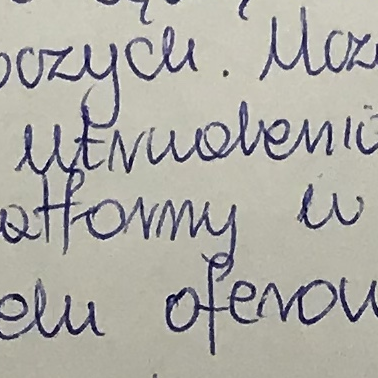 oczych. Moż
utrudnieni
atformy w
elu oferow